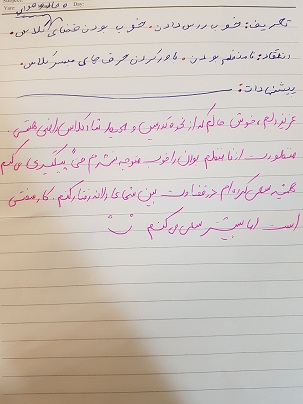 تعریف: خوب درس دادن. خوب بودن فضای کلاس.
انتقاد: نامنظم بودن. باور کردن حرف های مبصر کلاس.
پیشنهادات:
عزیز دلم، خوش حالم که از نحوه تدریس و محیط شاد کلاس راضی هستی.
منظورت از نامنظم بودن را خوب متوجه نشدم پیگیری می کنم
همیشه سعی کرده ام در قضاوت بین شما عادلانه رفتار کنم. کار سختی
است اما بیشتر سعی می کنم